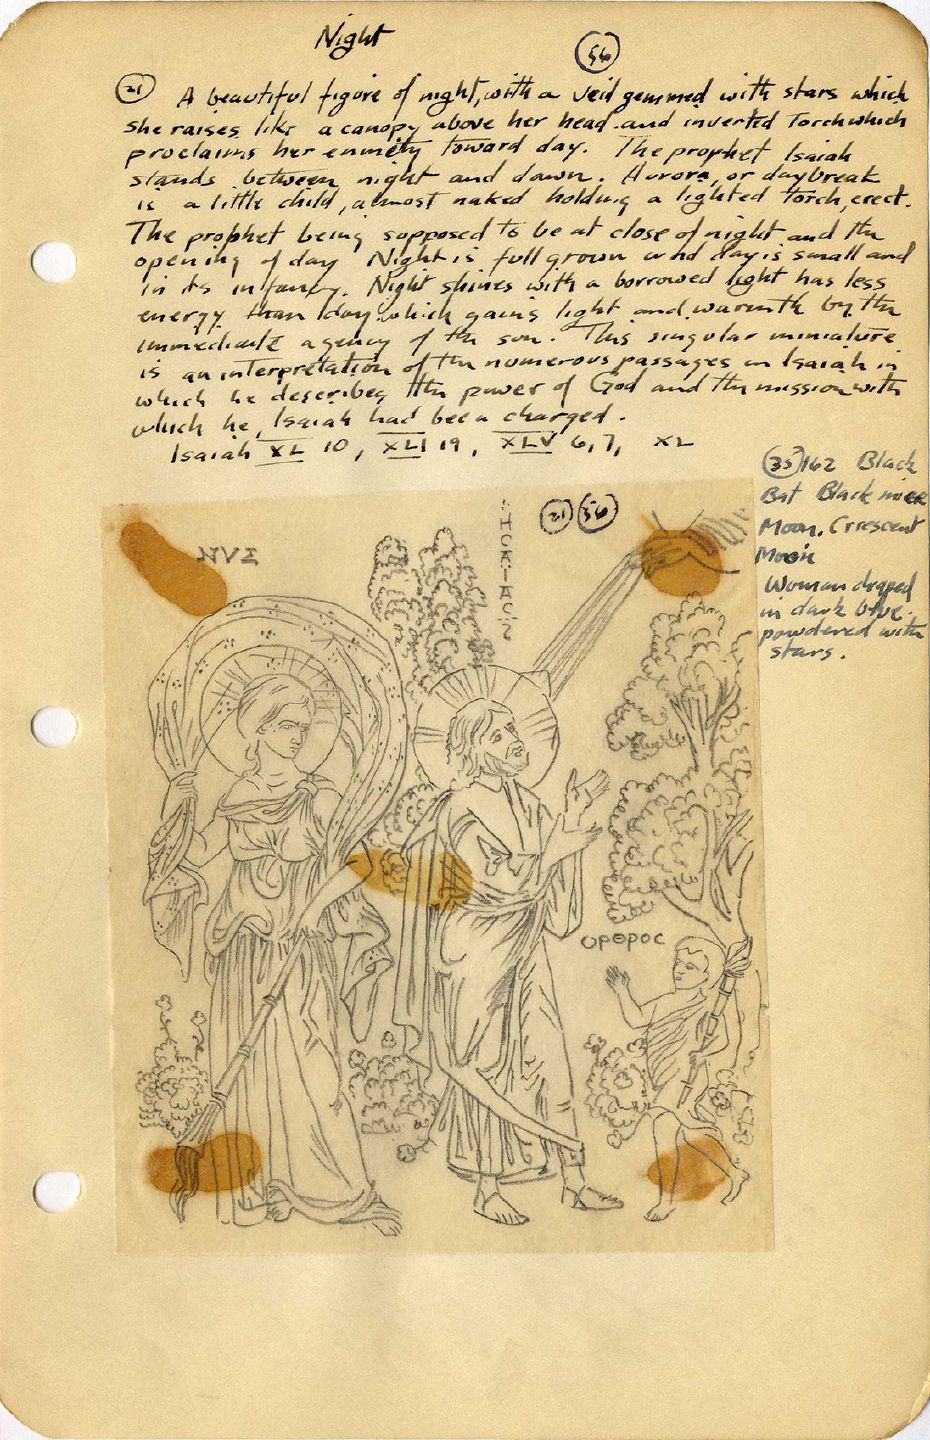 Night
56
21 A beautiful figure of night, with a veil gemmed with stars which
she raises like a canopy above her head and inverted Torch which
proclaims her enmity toward day. The prophet Isaiah
stands between night and dawn. Aurora, or daybreak
is a little child, almost naked holding a lighted torch, erect.
The prophet being supposed to be at close of night and the
opening of day Night is full grown and day is small and
in its infancy. Night shines with a borrowed light has less
energy than day which gains light and warmth by the
immediate agency of the son. This singular miniature
is an interpretation of the numerous passages in Isaiah in
which he describes the power of God and the mission with
which he, Isaiah had been charged.
Isaiah XL 10, XLI 19, XLV 6, 7, XL
35 162 Black
Bat Black mice
Moon. Crescent
Moon
Woman draped
in dark blue
powdered with
stars.
21 56
ΝΥΞ
ΟΡΘΡΟΣ